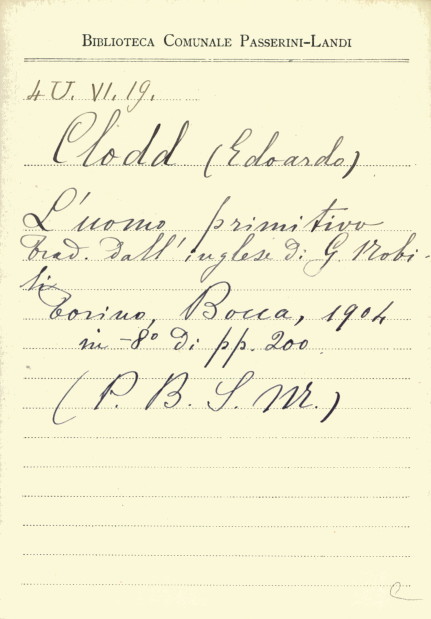 BIBLIOTECA COMUNALE PASSERINI-LANDI
4 U. VI. 19.
Clodd (Edoardo)
L'uomo primitivo
Trad. dall'inglese di G. Nobi-
li
Torino, Bocca, 1904
in-8° di pp. 200
(P. B. S. M.)